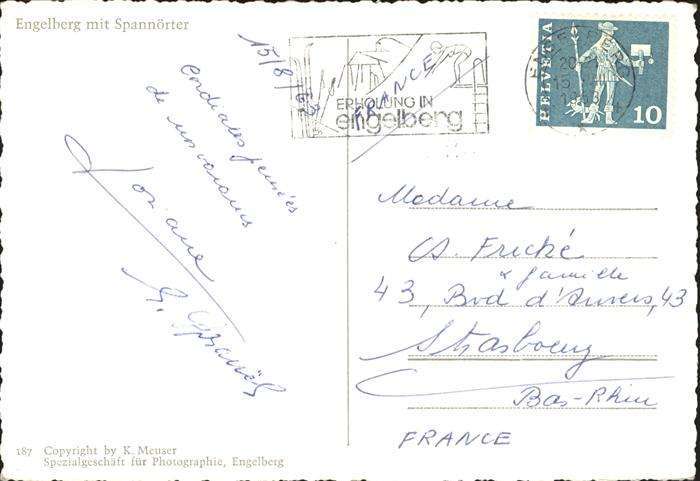 Engelberg mit Spannörter
15/8/63
Cordiales pensées
de nous
Josiane
ERHOLUNG IN
engelberg
FRANCE
HELVETIA
10
Madame
A. Frické
& famille
43, Bvd d'Anvers, 43
Strasbourg
Bas-Rhin
FRANCE
187 Copyright by K. Meuser
Spezialgeschäft für Photographie, Engelberg